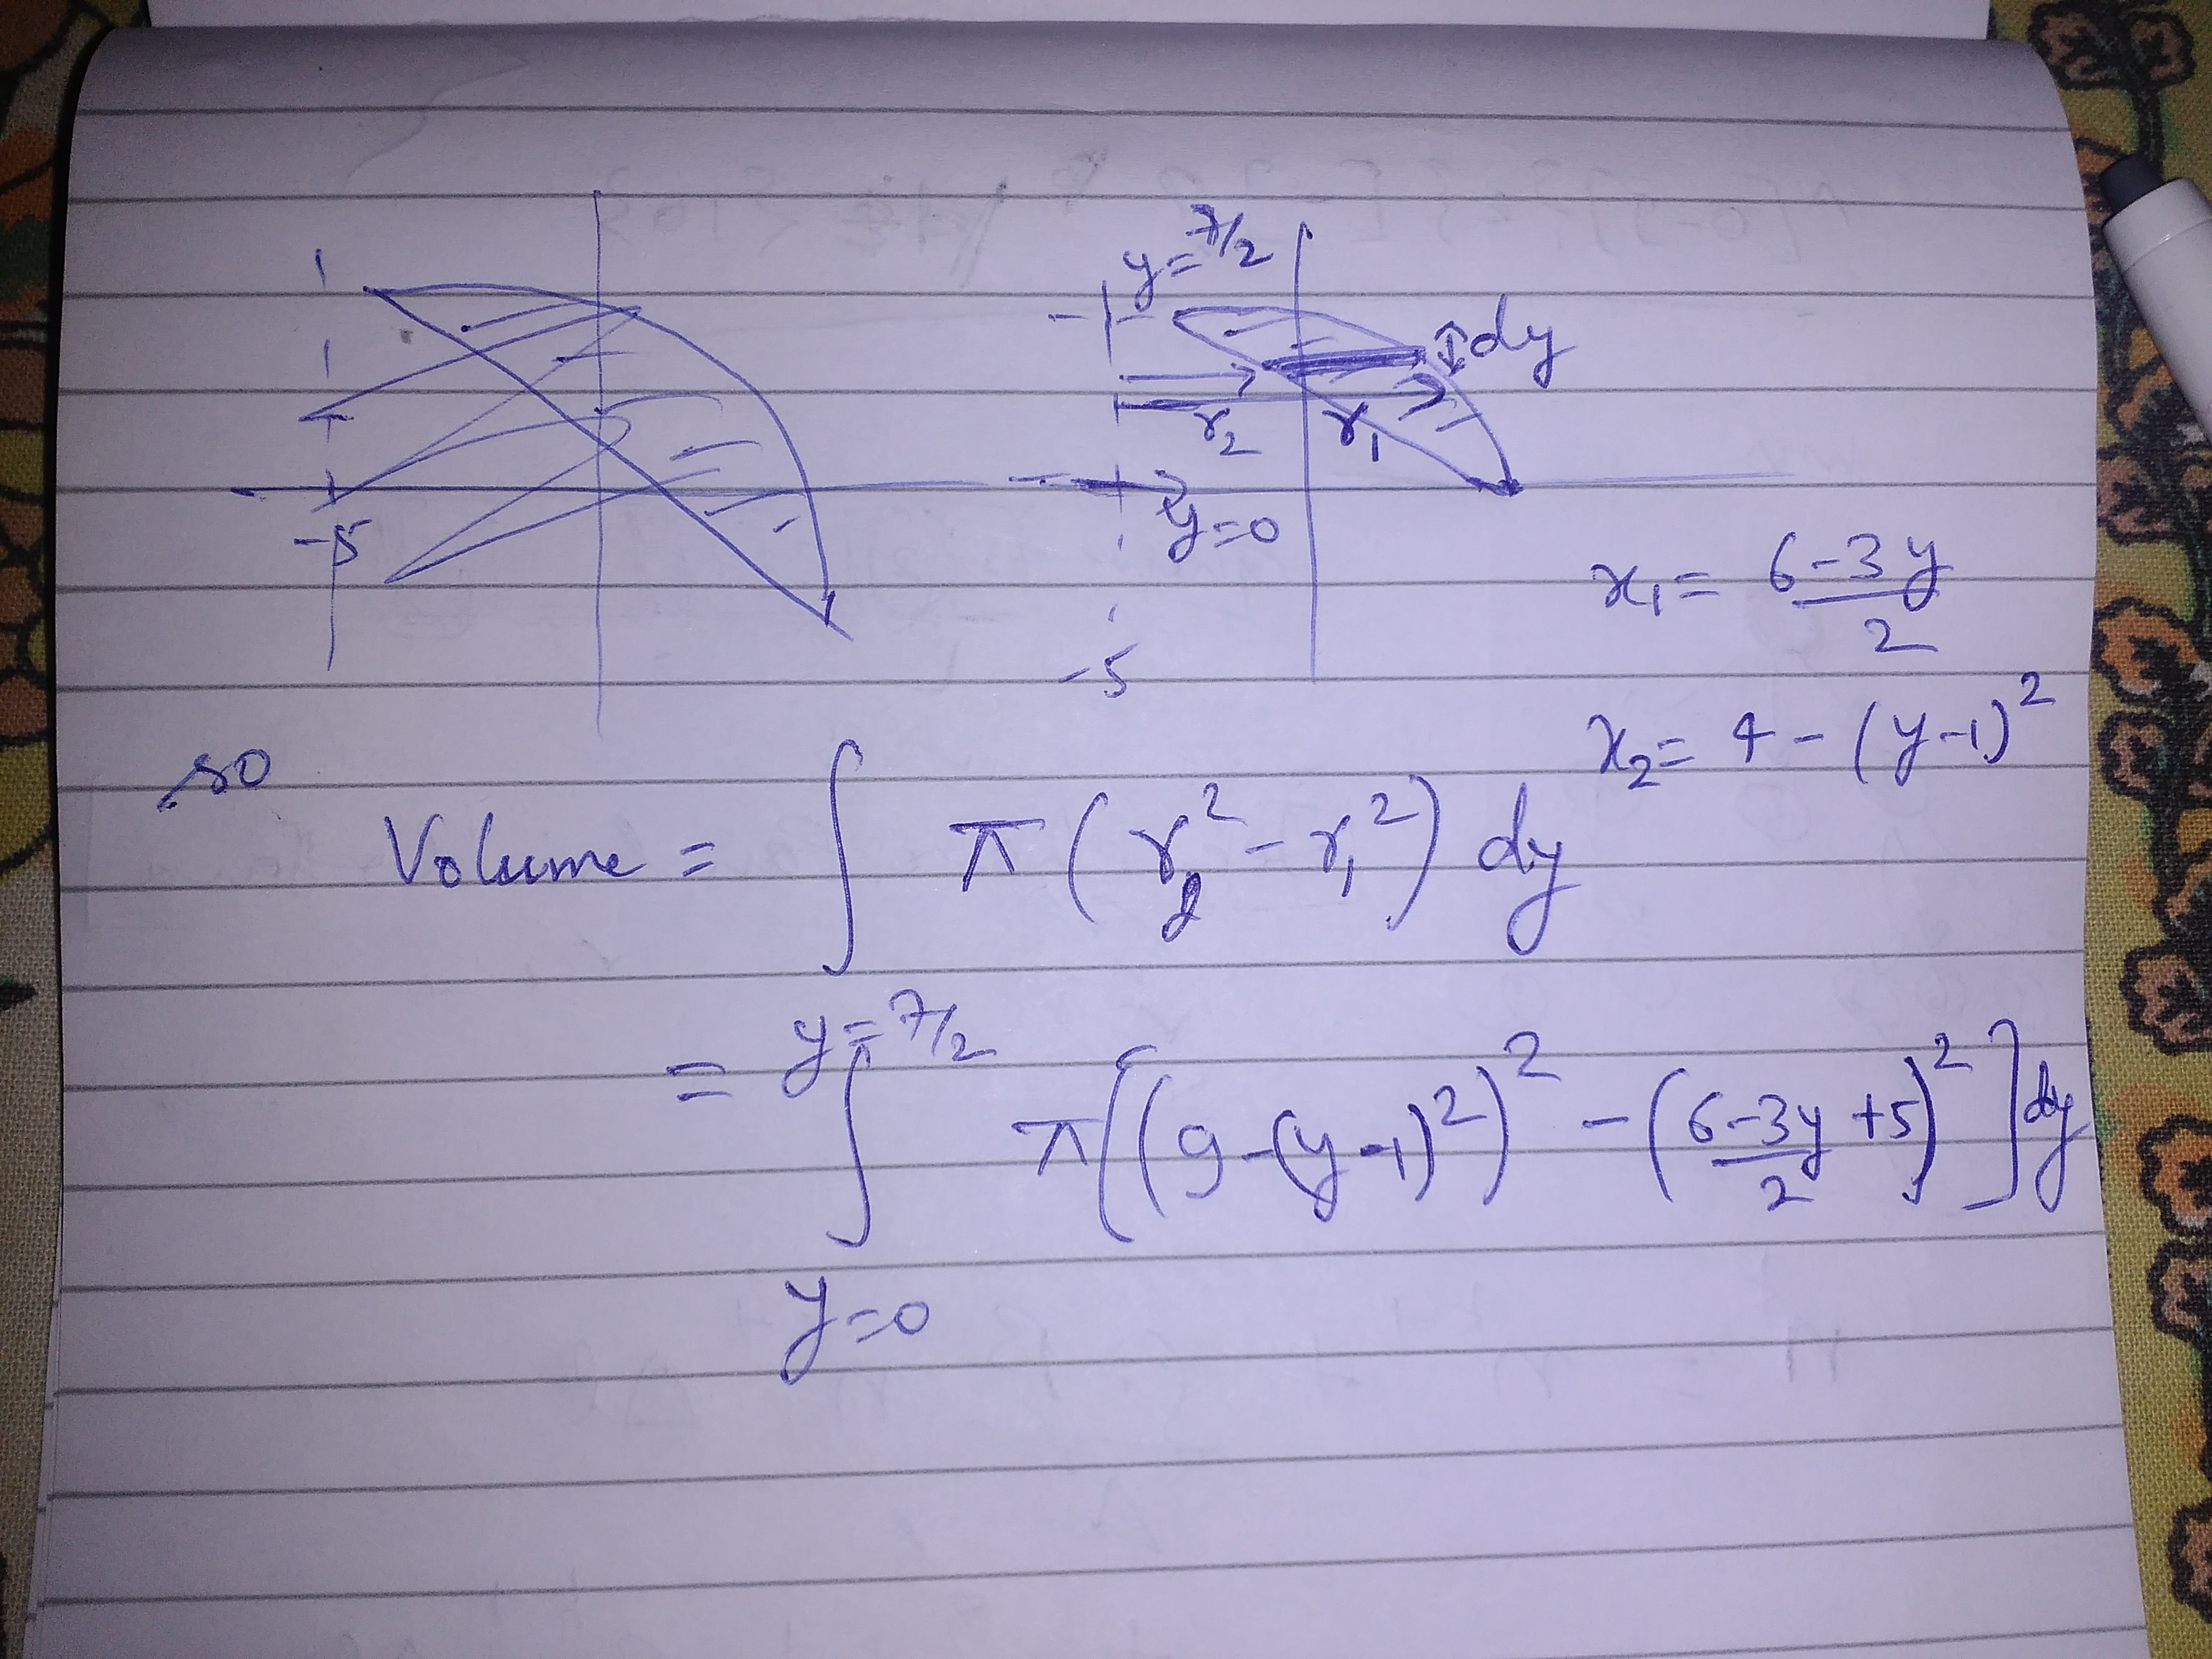 -5
y=7/2
dy
r2
r1
y=0
-5
x1 = (6-3y)/2
x2 = 4-(y-1)^2
so
Volume = ∫ π (r2^2 - r1^2) dy
= ∫_{y=0}^{y=7/2} π[(9-(y-1)^2)^2 - ((6-3y)/2 +5)^2] dy